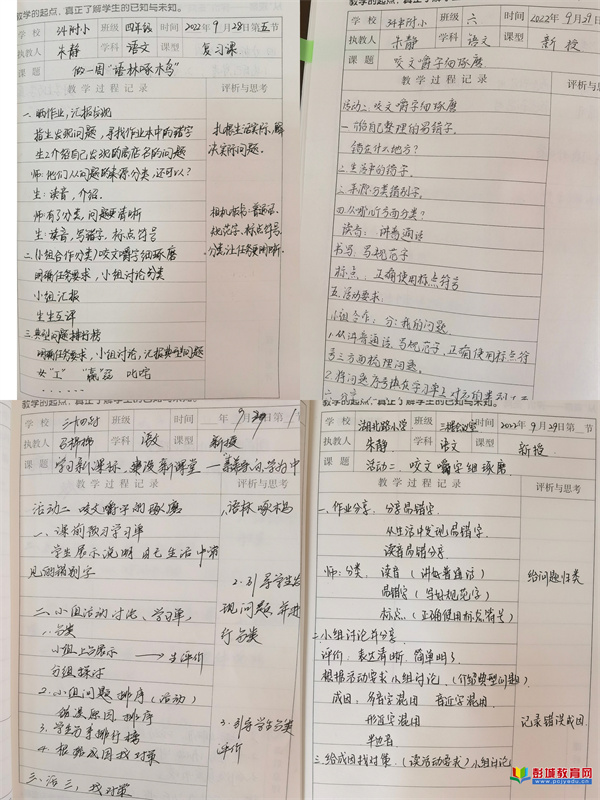 教学的起点，真正了解学生的已知与未知。
学 校 斗附小 班级 四年级 时间 2022年9月28日第五节
执教人 朱静 学科 语文 课型 复习课
课 题 做一周“语林啄木鸟”
教 学 过 程 记 录 评析与思考
一、晒作业，汇报发现
指生发现问题，寻找作业本中的错字
生2介绍自己发现的商店名的问题
扎根生活实际，解
决实际问题。
师：他们从问题的来源分类，还可以？
生：读音，介绍.
师：有了分类，问题更清晰
生：读音，写错字，标点符号
规范字、标点符号.
二、（小组合作分类）咬文嚼字细琢磨
明确任务要求，小组讨论分类
小组汇报
生生互评
三、典型问题排行榜
明确任务要求，小组讨论，汇报典型问题
学 校 班级 六 时间 2022年9月29日
执教人 朱静 学科 语文 课型 新 授
课 题 咬文嚼字细琢磨
教 学 过 程 记 录
活动二 咬文嚼字细琢磨
一、给自己整理的易错字.
错在什么地方？
二、生活中的错字.
四、从哪几方面分类？
读音：讲普通话
书写：写规范字
标点：正确使用标点符号
五、活动要求.
小组合作：分：我的问题.
1.从讲普通话，写规范字，正确使用标点符
号三方面梳理问题。
教学的起点，真正了解学生的已知与未知。
学 校 班级 时间 年 9月29日第1节
执教人 学科 语文 课型 新授
课 题 学习新课标，建设新课堂
教 学 过 程 记 录 评析与思考
活动二 咬文嚼字细琢磨 语林啄木鸟
一、课前预习学习单
学生展示说明自己生活中常
见的错别字
2.引导学生发
现问题，并进
行分类
二、小组活动讨论、学习单，
1.分类
小组上台展示 → 生评价
分组探讨
2.小组问题排序（活动）
错误原因排序
3.学生分享排行榜
4.根据成因找对策
3.引导学生分类
评价
三、活三，找对策
教学的起点，真正了解学生的已知与未知。
学 校 湖北路小学 班级 时间 2022年9月29日第 节
执教人 朱静 学科 语文 课型 新授
课 题 活动二 咬文嚼字细琢磨
教 学 过 程 记 录 评析与思考
一、作业分享：分享易错字.
从生活中发现易错字.
读音易错分享.
师：分类：读音（讲好普通话）
给问题归类
易错字（写好规范字）
标点（正确使用标点符号）
二、小组讨论并分享.
评价：表达清晰，简单明了.
根据活动要求小组讨论.（介绍典型问题）
成因：多音字混用 音近字混用
形近字混用
记录错误成因.
三、给成因找对策.（读活动要求）小组讨论
彭城教育网
www.pcjyedu.cn